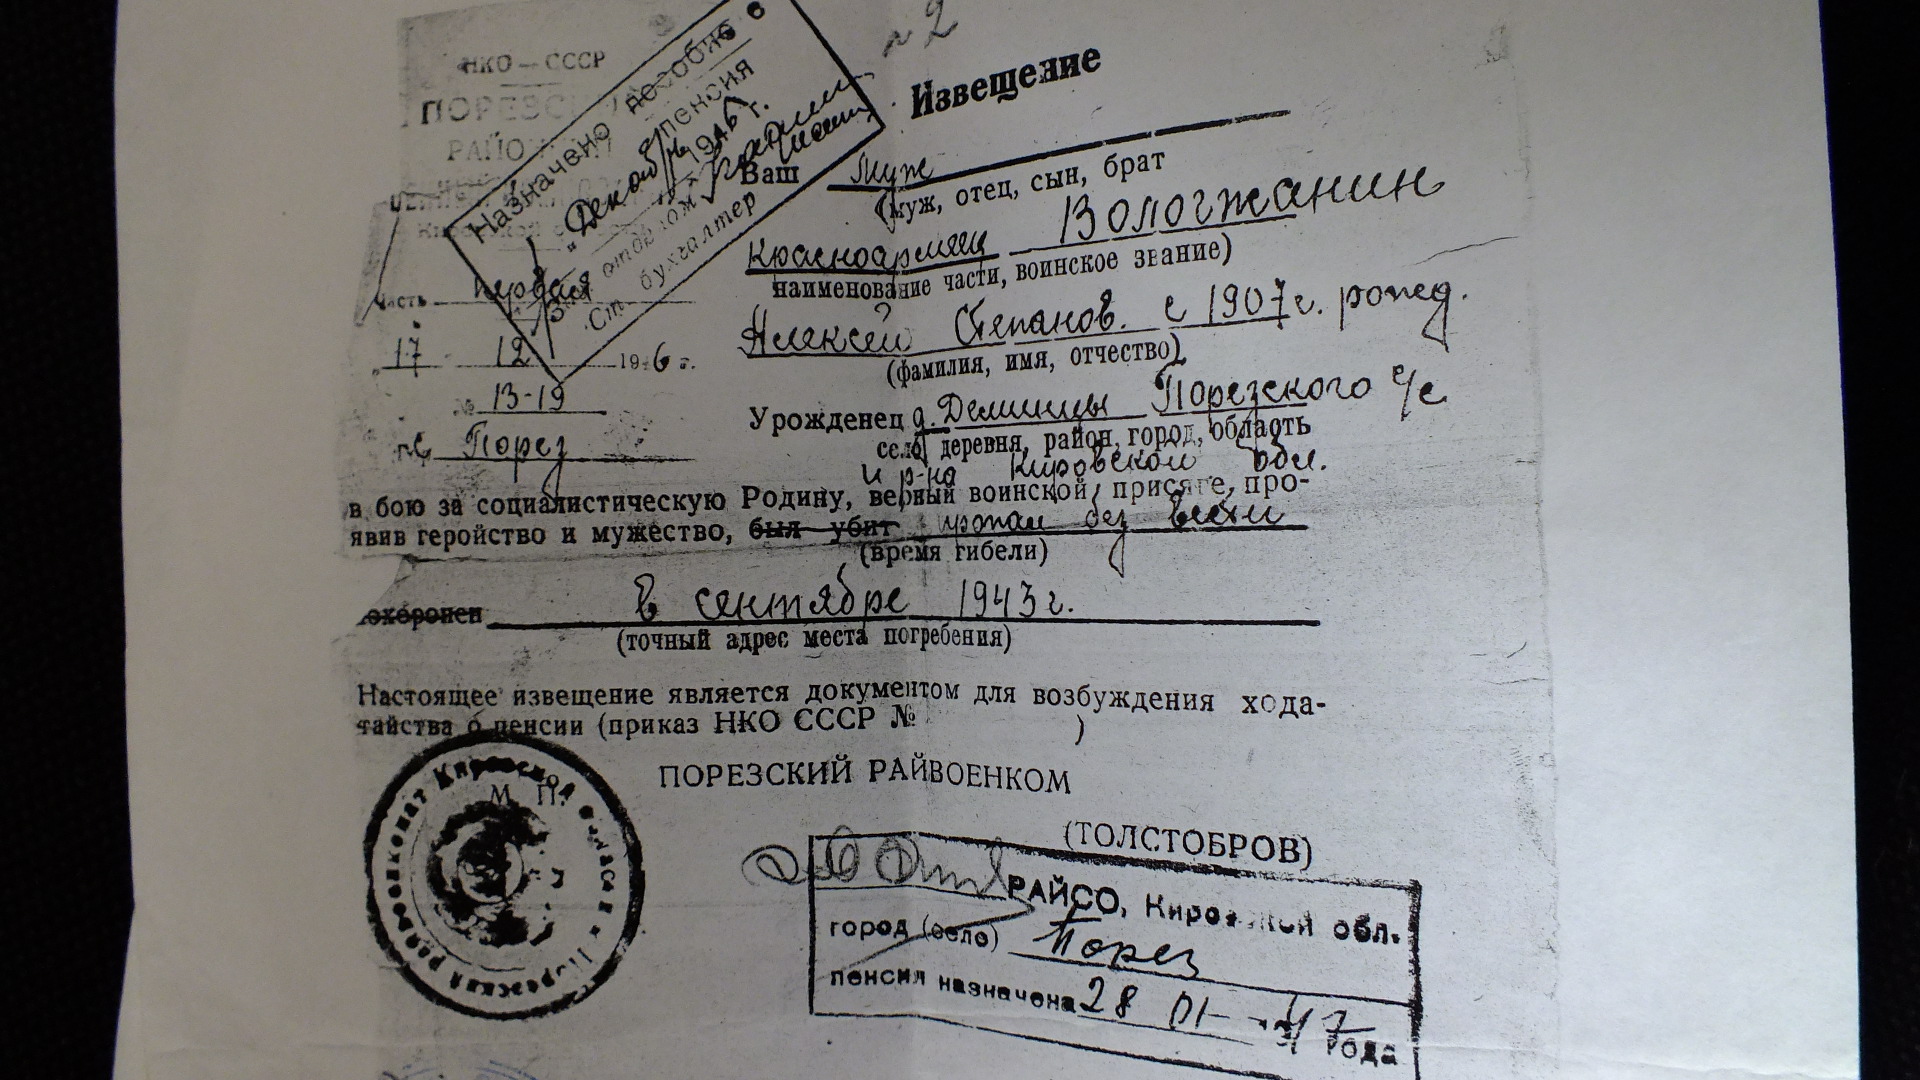 № 2
НКО — СССР
ПОРЕЗСКИЙ
РАЙОННЫЙ
Кировской области
Назначено пособие с
пенсия
" Декабря 1946 г.
Зав. отделом
Ст. бухгалтер
часть Первая
" 17 " 12 1946 г.
№ 13-19
с Порез
Извещение
Ваш муж
(муж, отец, сын, брат
Красноармеец Вологжанин
наименование части, воинское звание)
Алексей Степанов. с 1907 г. рожд.
(фамилия, имя, отчество)
Урожденец д. Порезского с/с
село, деревня, район, город, область
и р-на Кировской обл.
в бою за социалистическую Родину, верный воинской присяге, про-
явив геройство и мужество, был убит пропал без вести
(время гибели)
в сентябре 1943 г.
охоронен
(точный адрес места погребения)
Настоящее извещение является документом для возбуждения хода-
тайства о пенсии (приказ НКО СССР № )
М. П.
ПОРЕЗСКИЙ РАЙВОЕНКОМ
(ТОЛСТОБРОВ)
Кировская область * Порезский райвоенкомат
РАЙСО, Кировской обл.
город (село) Порез
пенсия назначена 28 01 1947
года